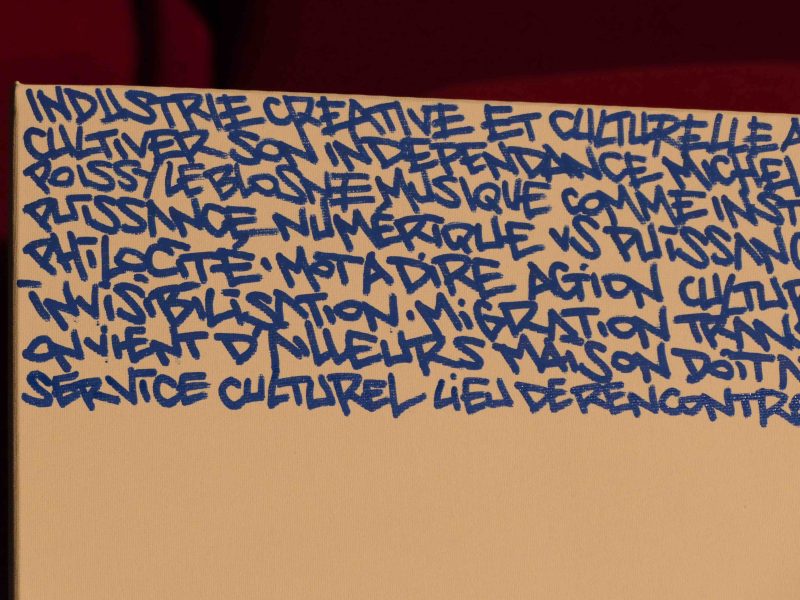 INDUSTRIE CREATIVE ET CULTURELLE
CULTIVER SON INDEPENDANCE MICHEL
POISSY/LE BLOSNE MUSIQUE COMME INST
PUISSANCE NUMÉRIQUE VS PUISSANC
PHILOCITÉ. MOT A DIRE AGION CULTUR
INVISIBILISATION. MIGRATION TRANS
ON VIENT D'AILLEURS MAIS ON DOIT
SERVICE CULTUREL LIEU DE RENCONTRE